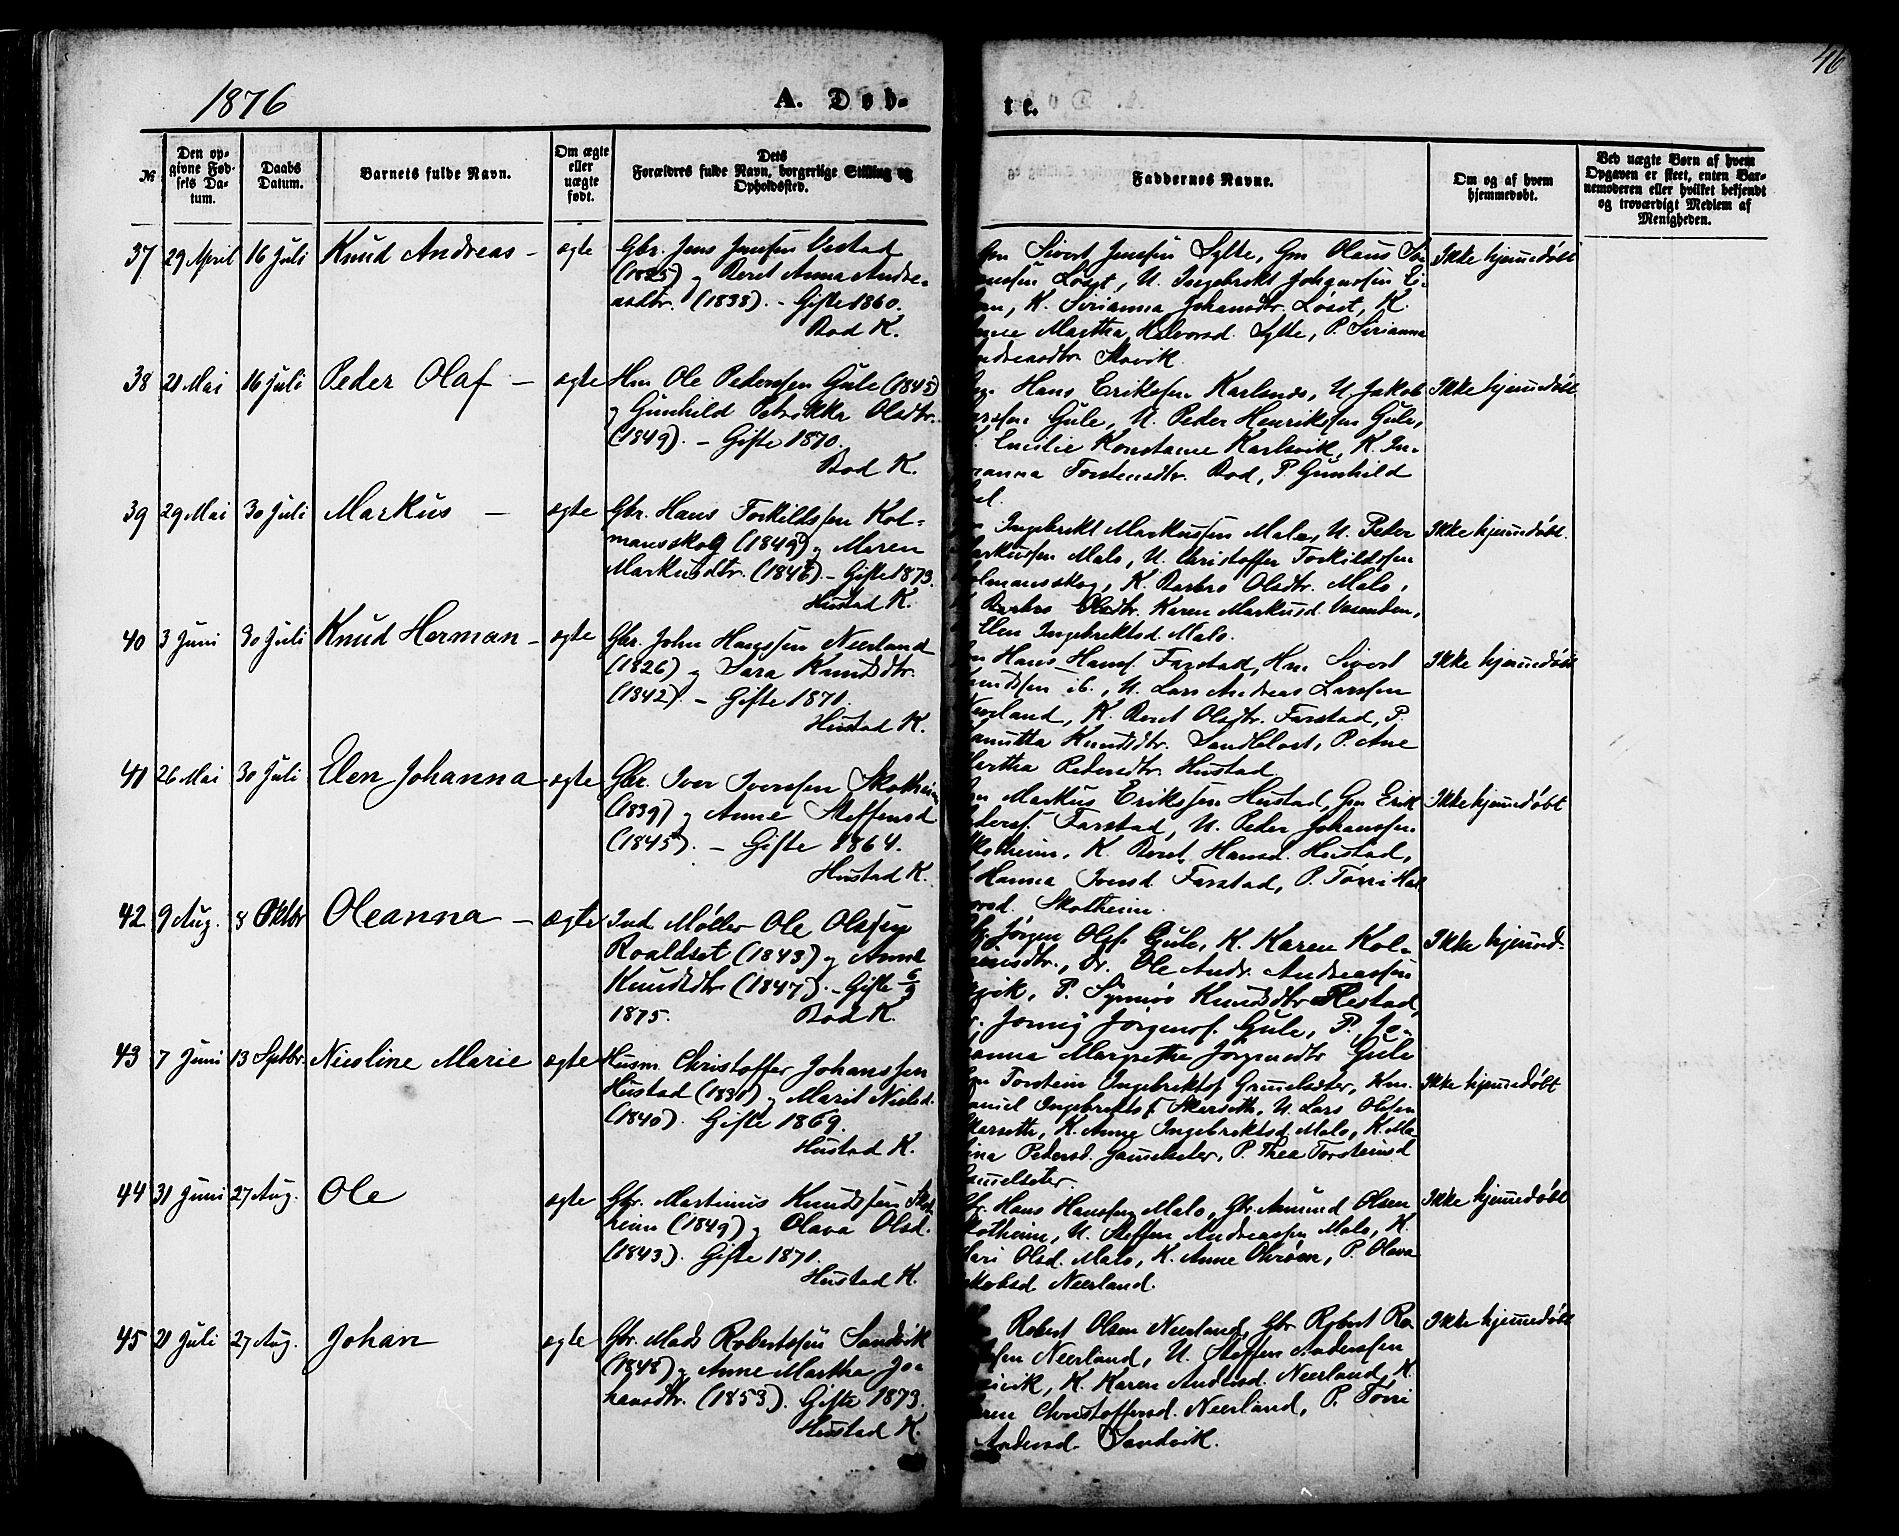 46
1876
A. Døb-
te.
№
Den op-
givne Fød-
sels Da-
tum.
Daabs
Datum.
Barnets fulde Navn.
Om ægte
eller
uægte
født.
Dets
Forældres fulde Navn, borgerlige Stilling og
Opholdssted.
Faddernes Navne.
Om og af hvem
hjemmedøbt.
Ved uægte Børn af hvem
Opgaven er skeet, enten Bar-
nemoderen eller hvilket bekjendt
og troværdigt Medlem af
Menigheden.
37 29 April 16 Juli Knud Andreas - ægte
Gbr. Jens Jensen Vestad
(1825) og Beret Anna Andre-
asdtr. (1838). - Gifte 1860.
Bod K.
Sivert Jensen Sylte, Gm Olaus
Løset, U. Ingebrekt Johansen
K. Sirianna Johansdtr. Løset, K.
Martha Halvorsd. Sylte, P. Sirianna
Ikke hjemmedøbt
38 21 Mai 16 Juli Peder Olaf - ægte
Hm Ole Pedersen Gule (1845)
og Gunhild Petrikka Olsdtr.
(1849). - Gifte 1870.
Bod K.
Hans Eriksen Karlsnes, U Jakob
Gule, U. Peder Henriksen Gule,
Konstance Karlsvik, K. In-
Torstensdtr. Bod, P Gunhild
Ikke hjemmedøbt
39 29 Mai 30 Juli Markus - ægte
Gbr. Hans Torkildssen Kol-
mansskog (1849) og Maren
Markusdtr. (1846). - Gifte 1873.
Hustad K.
Ingebrekt Markussen Malo, U. Peder
Malo, U. Christoffer Torkildssen
K. Barbro Olsdtr. Malo,
Barbro Olsdtr. Karen Markusd. Vasenden,
Elen Ingebrektsd. Malo.
Ikke hjemmedøbt.
40 3 Juni 30 Juli Knud Herman - ægte
Gbr. John Hanssen Neerland
(1826) og Sara Knudsdtr.
(1842) - Gifte 1871.
Hustad K.
Hans Hansf. Farstad, Hm Sivert
ib., U. Lars Andreas Larssen
K. Beret Olsdtr. Farstad, P.
Knudsdtr. Sandblost, P. Ane
Pedersdtr. Hustad
Ikke hjemmedøbt
41 26 Mai 30 Juli Elen Johanna - ægte
Gbr. Iver Iverssen Skotheim
(1839) og Anne Steffensd
(1845). - Gifte 1864.
Hustad K.
Markus Erikssen Hustad, Gm Erik
Farstad, U. Peder Johanssen
K. Beret Hansd. Hustad,
Hanna Iversd Farstad, P. Tørri
Skotheim.
Ikke hjemmedøbt
42 9 Aug. 8 Oktbr Oleanna - ægte
Ind. Møller Ole Olsen
Roaldset (1843) og Anne
Knudsdtr (1847). - Gifte 6/9
1875. Bod K.
Jørgen Olsf. Gule, K. Karen Kol-
Dr. Ole Andr. Andreassen
P. Synnøv Knudsdtr Hestad,
Jørgensf. Gule, P. Jo-
hanna Margrethe Jørgensdtr Gule
Ikke hjemmd-
43 7 Juni 13 Septbr. Nieline Marie ægte
Husm. Christoffer Johanssen
Hustad (1831) og Marit Nielsd.
(1840). Gifte 1869.
Hustad K.
Torstein Ingebrektsf Gammelsæter, Hm.
Ingebrektsf. Skarseth, U. Lars Olsen
Skarseth, K. Anne Ingebrektsd Malo, K. Ma-
Pedersd. P. Thea Torsteinsd
Ikke hjemmedøbt
44 31 Juni 27 Aug. Ole ægte
Gbr. Martinus Knudssen Skot-
heim (1849) og Olava Olsd.
(1843). Gifte 1871.
Hustad K.
Hans Hanssen Malo, Gbr Amund Olsen
Skotheim, U. Steffen Andreassen Malo, K.
Mari Olsd. Malo, K. Anne P. Olava
Jakobsd Neerland.
Ikke hjemmedøbt
45 21 Juli 27 Aug. Johan ægte
Gbr. Mads Robertssen Sandvik
(1848) og Anne Martha Jo-
hansdtr. (1853). Gifte 1873.
Hustad K.
Robert Olsen Neerland, Gbr Robert Ro-
Neerland, U. Steffen Anderssen
K. Karen Andersd. Neerland, K.
Christoffersd. Neerland, P. Tørri
Andersd. Sandvik.
Ikke hjemmedøbt